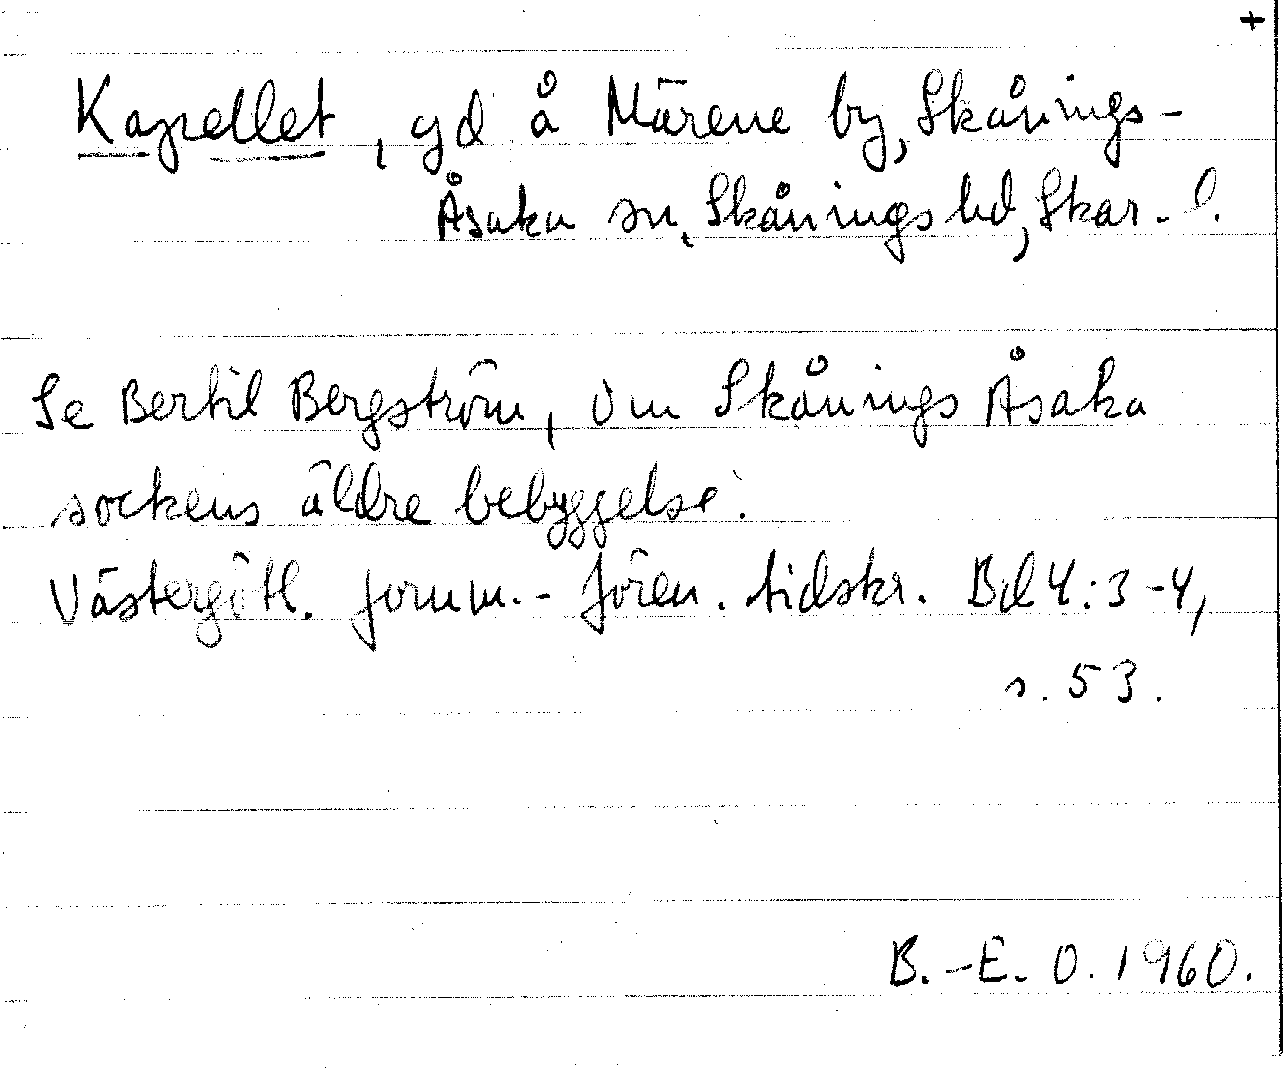 +
Kapellet, gd å Märene by, Skånings-
Åsaka sn, Skånings hd, Skar. l.
Se Bertil Bergström, Om Skånings Åsaka
sockens äldre bebyggelse.
Västergötl. fornm.- fören. tidskr. Bd 4:3-4,
s. 53.
B.-E. O. 1960.